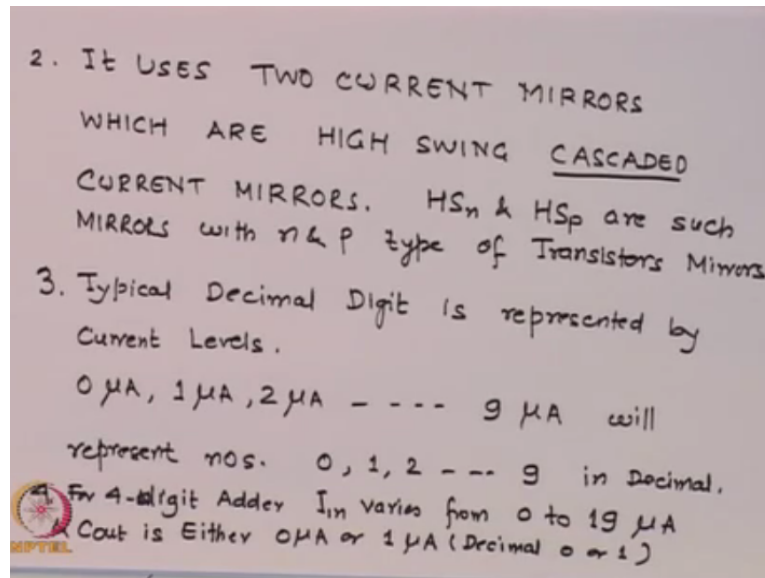 2. It USES TWO CURRENT MIRRORS
WHICH ARE HIGH SWING CASCADED
CURRENT MIRRORS. HSn & HSp are such
MIRRORS with n & p type of Transistors Mirrors
3. Typical Decimal Digit is represented by
Current Levels.
0 μA, 1 μA, 2 μA - - - - 9 μA will
represent nos. 0, 1, 2 - - - 9 in Decimal.
4. For 4-digit Adder Iin varies from 0 to 19 μA
& Cout is Either 0μA or 1 μA (Decimal 0 or 1)
NPTEL